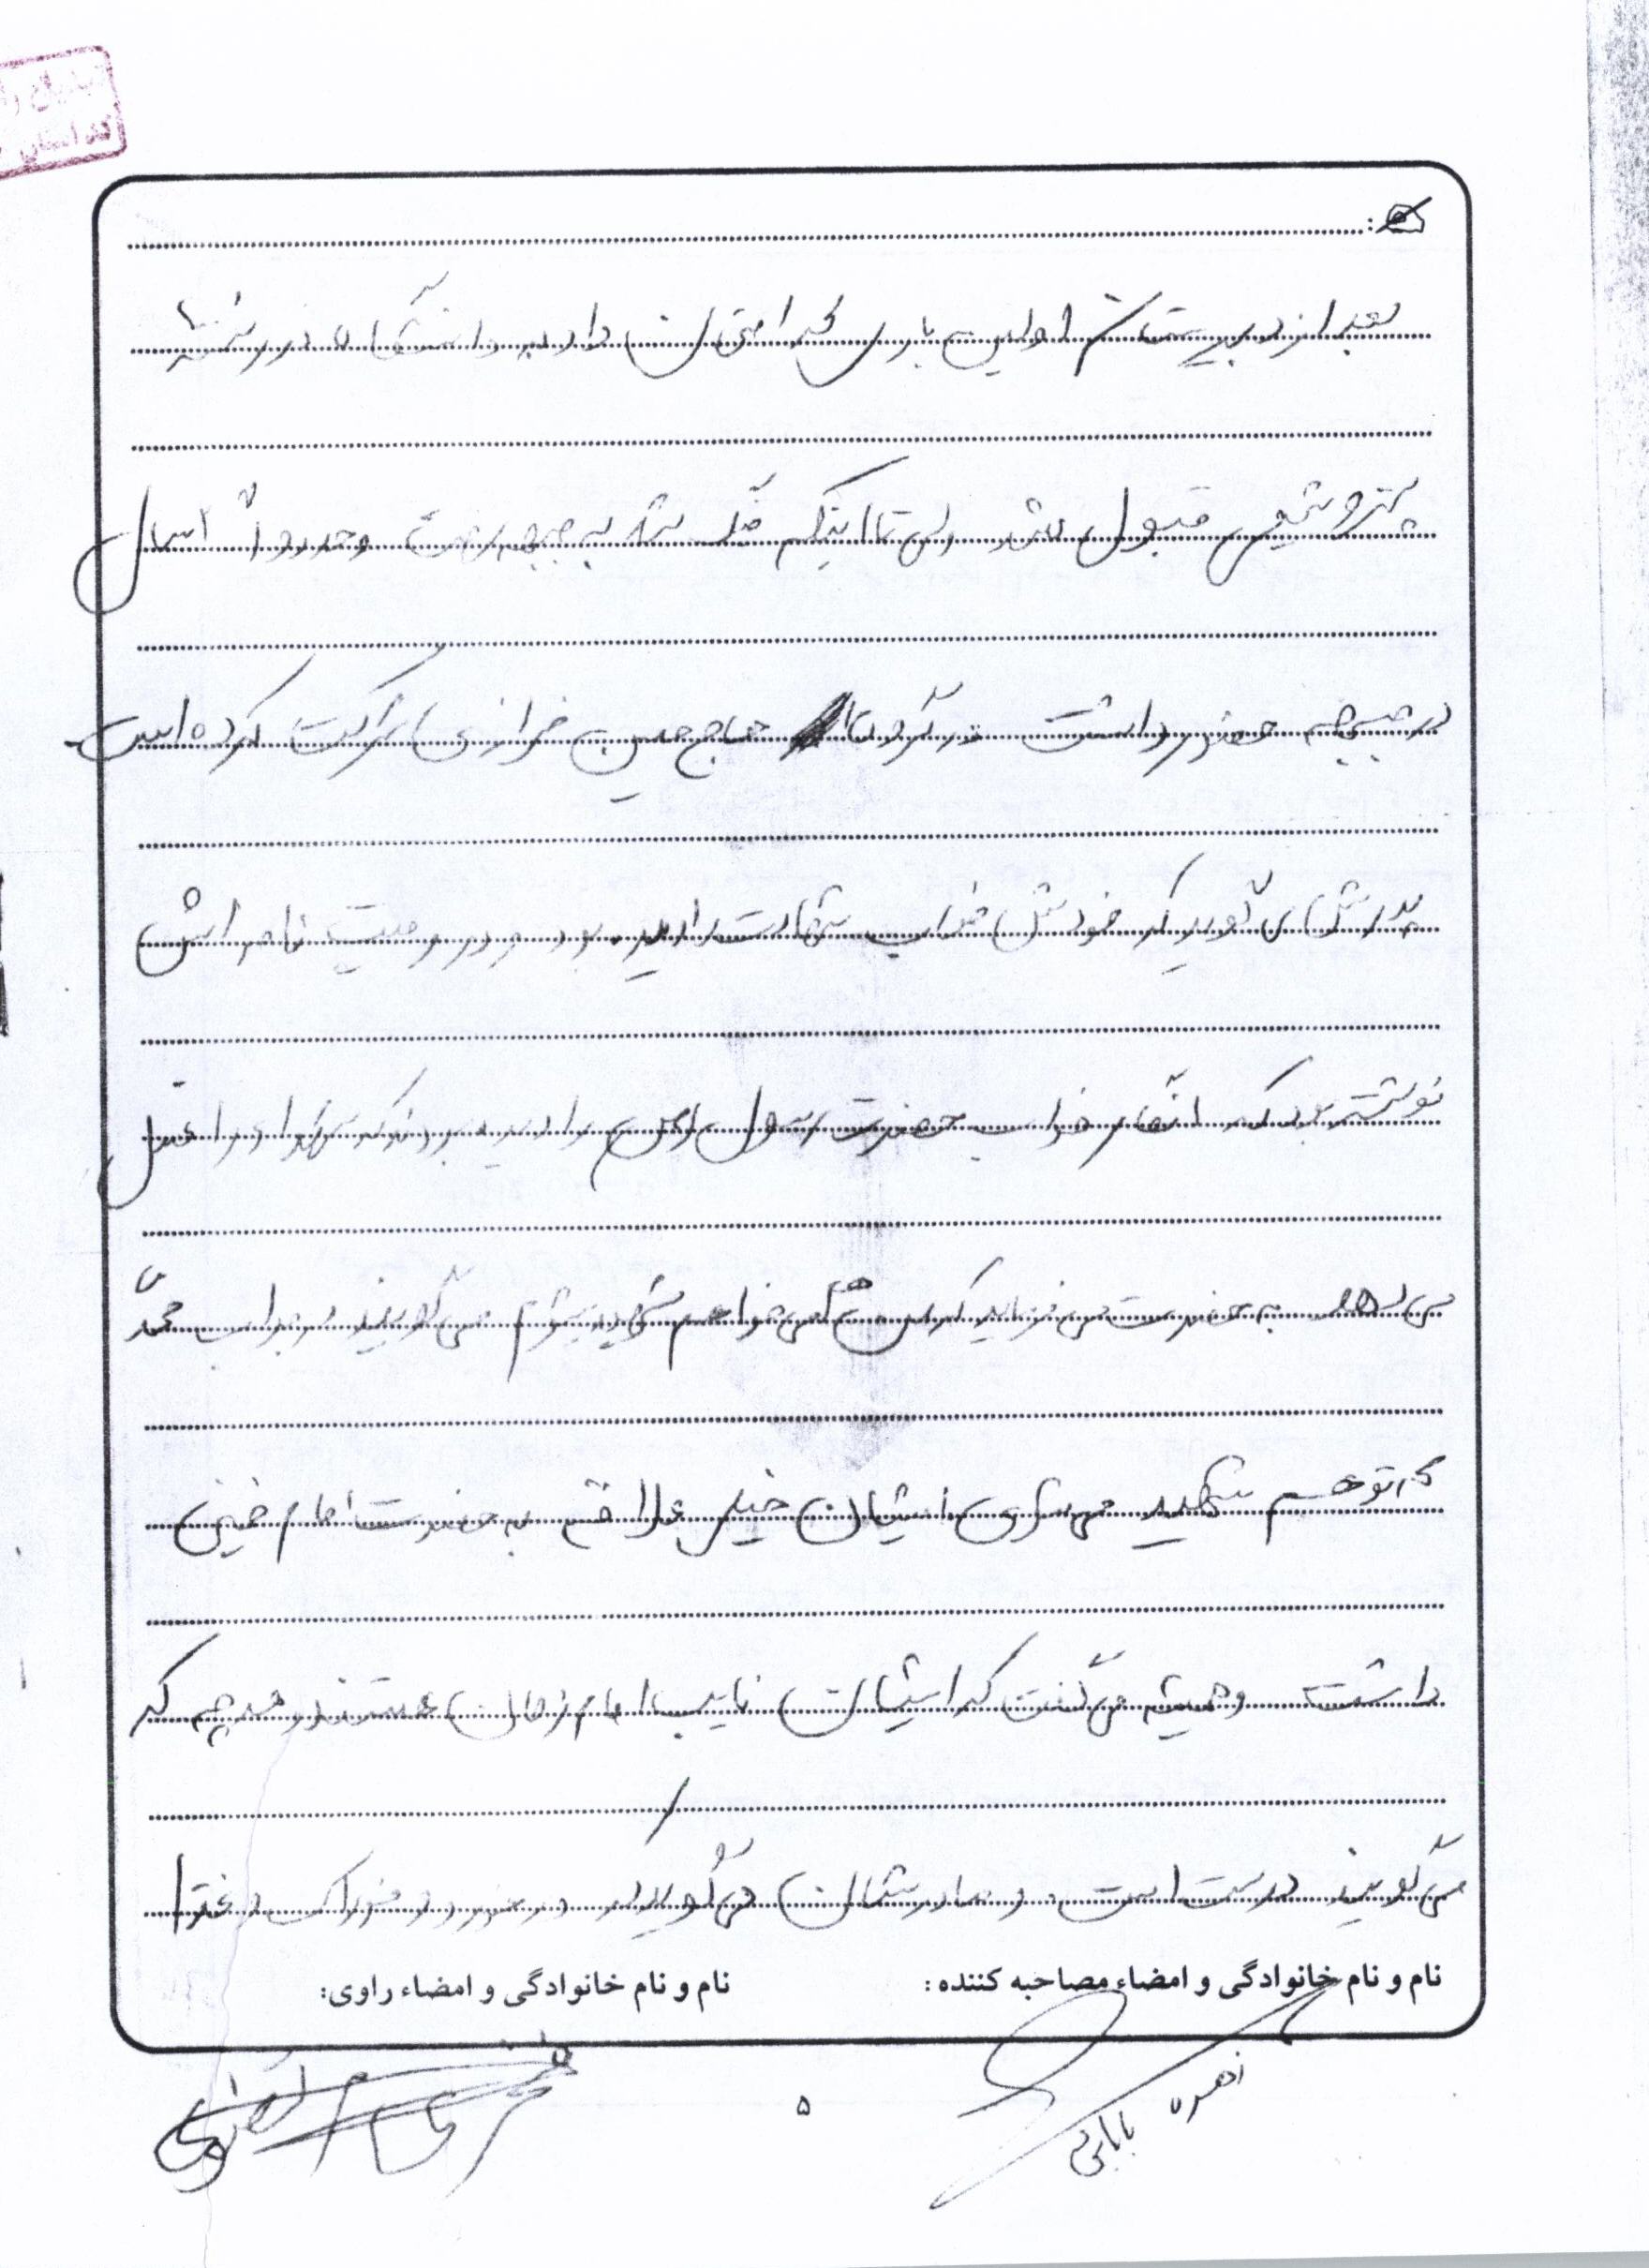 بعد از دبیرستان اولین باری که امتحان داد به دانشگاه در رشته
پتروشیمی قبول شد ولی تا اینکه جنگ شد به جبهه رفت و حدود ۱ سال
در جبهه حضور داشت در گردان حاج حسین خرازی شرکت کرده است
پدرشان می گوید که خودش خواب شهادت را دیده بود و در وصیت نامه اش
نوشته بود که انگار خواب حضرت رسول اکرم را دیده بودند که شهدا را
می به حضرت می فرماید که من هم می خواهم شهید بشوم می گویند در جواب محمد
که تو هم شهید می شوی ایشان خیلی علاقه به حضرت امام خمینی
داشت و همیشه می گفت که ایشان نایب امام زمان هستند و هر چه که
می گویند درست است و مادرشان می گوید که در مورد خوراک و غذا
نام و نام خانوادگی و امضاء مصاحبه کننده:
نام و نام خانوادگی و امضاء راوی:
زهره بابایی
۵